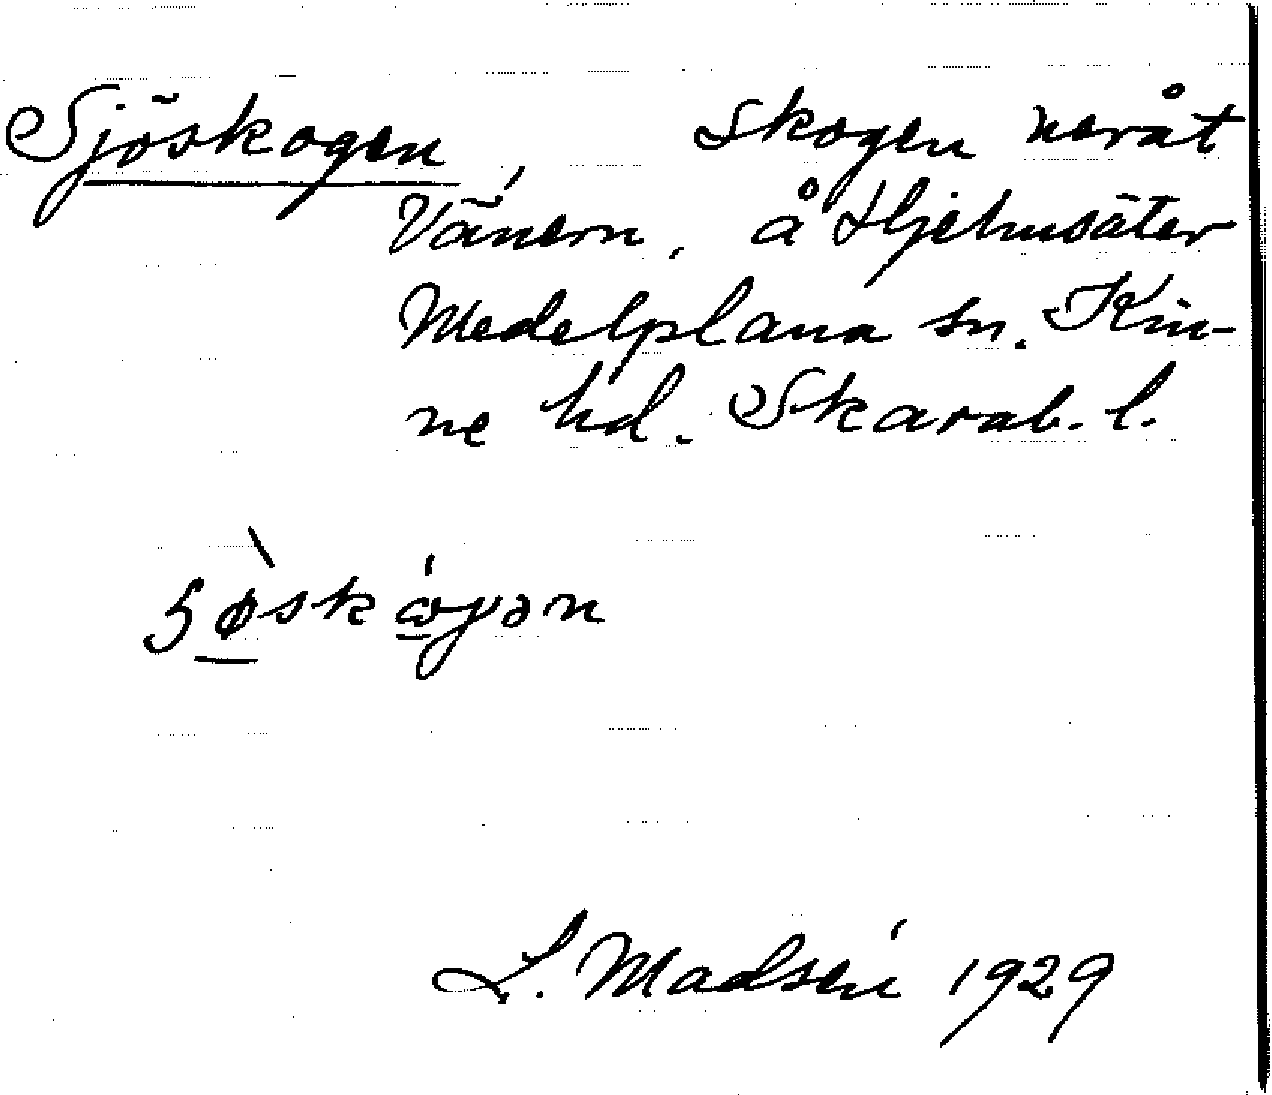 Sjöskogen, Skogen neråt
Vänern, å Hjelmsäter
Medelplana sn. Kin-
ne hd. Skarab. l.
L. Madsén 1929